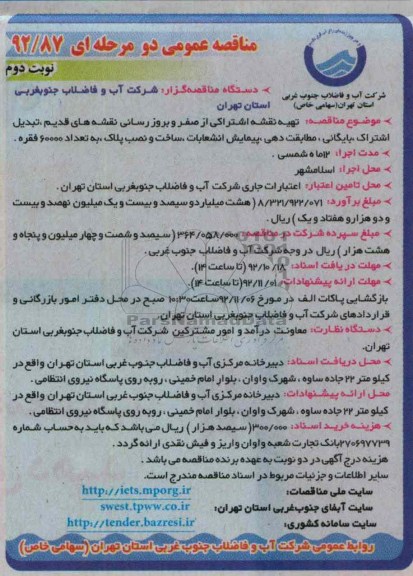 مناقصه عمومی دو مرحله ای ۹۲/۸۷
نوبت دوم
شرکت آب و فاضلاب جنوب غربی
استان تهران(سهامی خاص)
دستگاه مناقصه‌گزار: شرکت آب و فاضلاب جنوبغربی
استان تهران
موضوع مناقصه: تهیه نقشه اشتراکی از صفر و بروز رسانی نقشه های قدیم ،تبدیل
اشتراک ،بایگانی ، مطابقت دهی ،پیمایش انشعابات ،ساخت و نصب پلاک ،به تعداد ۶۰۰۰۰ فقره .
مدت اجرا: ۱۲ماه شمسی .
محل اجرا: اسلامشهر
محل تامین اعتبار: اعتبارات جاری شرکت آب و فاضلاب جنوبغربی استان تهران .
مبلغ برآورد: ۸/۳۲۱/۹۲۲/۰۷۱ ( هشت میلیارد و سیصد و بیست و یک میلیون نهصد و بیست
و دو هزار و هفتاد و یک ) ریال .
مبلغ سپرده شرکت در مناقصه: ۳۶۴/۰۵۸/۰۰۰ ( سیصد و شصت و چهار میلیون و پنجاه و
هشت هزار ) ریال در وجه شرکت آب و فاضلاب جنوب غربی .
مهلت دریافت اسناد: ۹۲/۱۰/۱۸ (تا ساعت ۱۴).
مهلت ارائه پیشنهادات: ۹۲/۱۱/۰۱ (تا ساعت ۱۴).
بازگشایی پاکات الف در مورخ ۹۲/۱۱/۰۶ ساعت ۱۰:۳۰ صبح در محل دفتر امور بازرگانی و
قراردادهای شرکت آب و فاضلاب جنوب غربی استان تهران
ParsNamadData
دستگاه نظارت: معاونت درآمد و امور مشترکین شرکت آب و فاضلاب جنوبغربی استان
تهران.
محل دریافت اسناد: دبیرخانه مرکزی آب و فاضلاب جنوب غربی استان تهران واقع در
کیلو متر ۲۲ جاده ساوه ، شهرک واوان ، بلوار امام خمینی ، روبه روی پاسگاه نیروی انتظامی .
محل ارائه پیشنهادات: دبیرخانه مرکزی آب و فاضلاب جنوب غربی استان تهران واقع در
کیلو متر ۲۲ جاده ساوه ، شهرک واوان ، بلوار امام خمینی ، روبه روی پاسگاه نیروی انتظامی .
هزینه خرید اسناد: ۳۰۰/۰۰۰( سیصد هزار ) ریال می باشد که باید به حساب شماره
۲۷۰۶۹۷۷۳۹ بانک تجارت شعبه واوان واریز و فیش نقدی ارائه گردد .
هزینه درج آگهی در دو نوبت به عهده برنده مناقصه می باشد .
سایر اطلاعات و جزئیات مربوط در اسناد مناقصه مندرج است.
سایت ملی مناقصات: http://iets.mporg.ir
سایت آبفای جنوب‌غربی استان تهران: swest.tpww.co.ir
سایت سامانه کشوری: http://tender.bazresi.ir
روابط عمومی شرکت آب و فاضلاب جنوب غربی استان تهران (سهامی خاص)